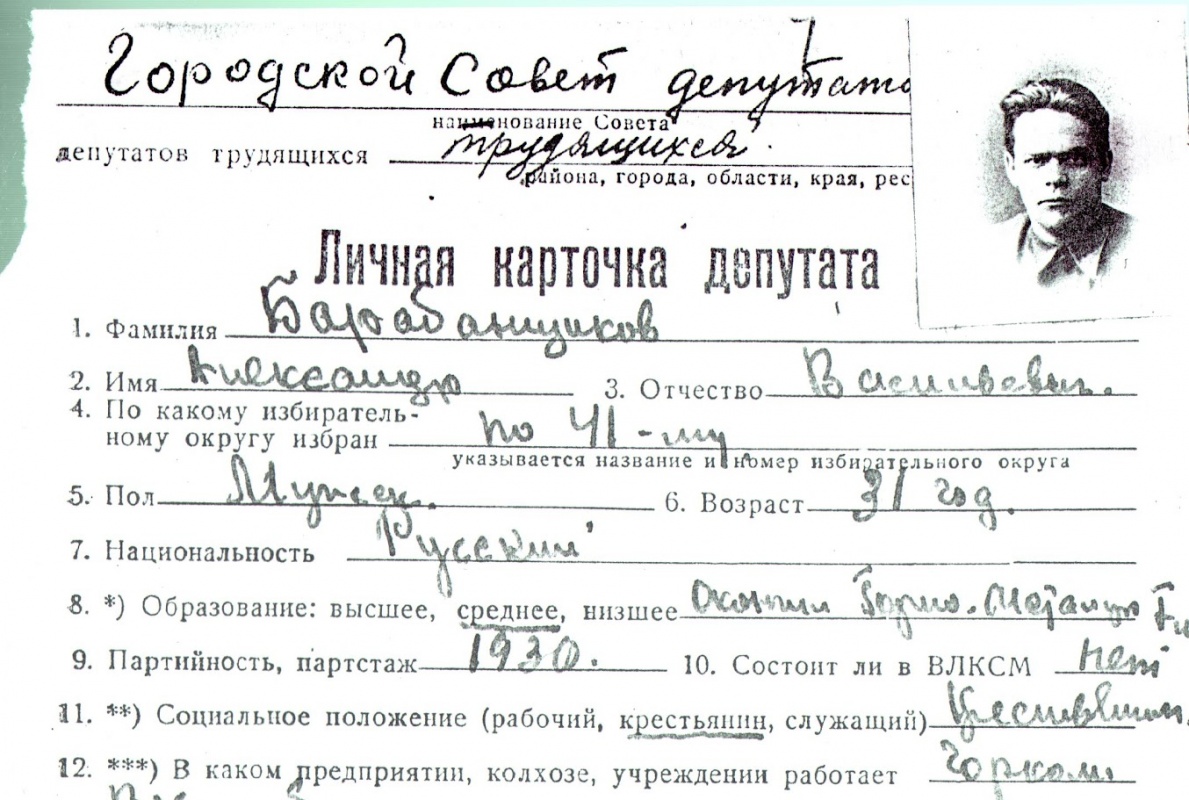 Городской Совет депутато
наименование Совета
депутатов трудящихся трудящихся.
района, города, области, края, рес
Личная карточка депутата
1. Фамилия Барабанщиков
2. Имя Александр 3. Отчество Васильевич.
4. По какому избиратель-
ному округу избран по 41-му
указывается название и номер избирательного округа
5. Пол Мужск. 6. Возраст 31 год.
7. Национальность Русский
8. *) Образование: высшее, среднее, низшее Окончил Горно-
9. Партийность, партстаж 1930. 10. Состоит ли в ВЛКСМ нет
11. **) Социальное положение (рабочий, крестьянин, служащий)
12. ***) В каком предприятии, колхозе, учреждении работает Горком